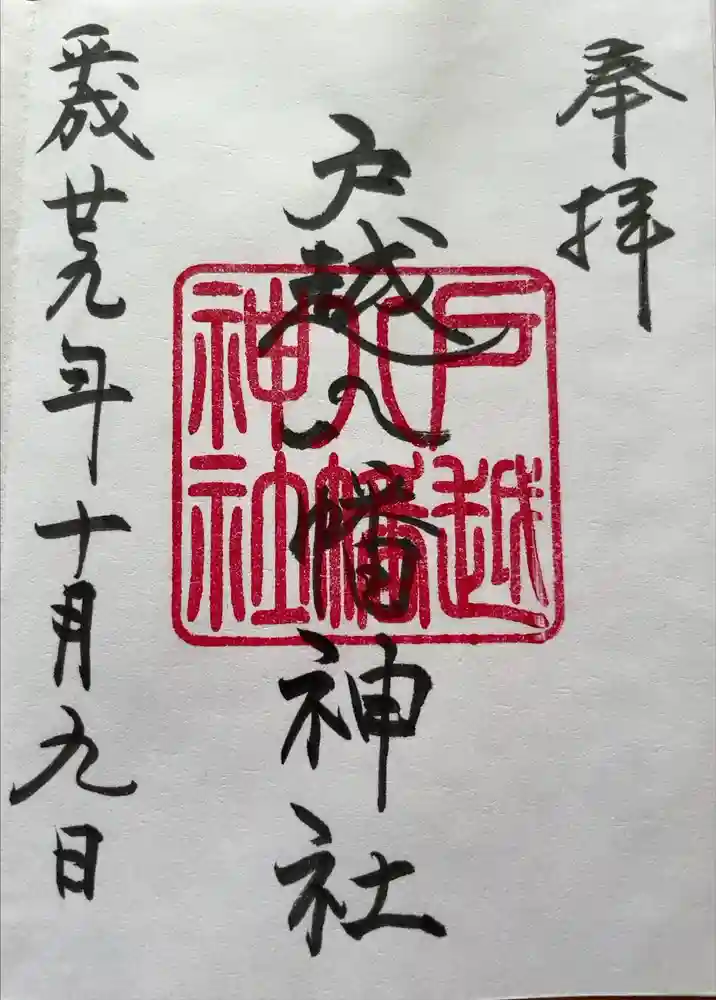 奉拝
戸越八幡神社
戸越
八幡
神社
平成廿九年十月九日